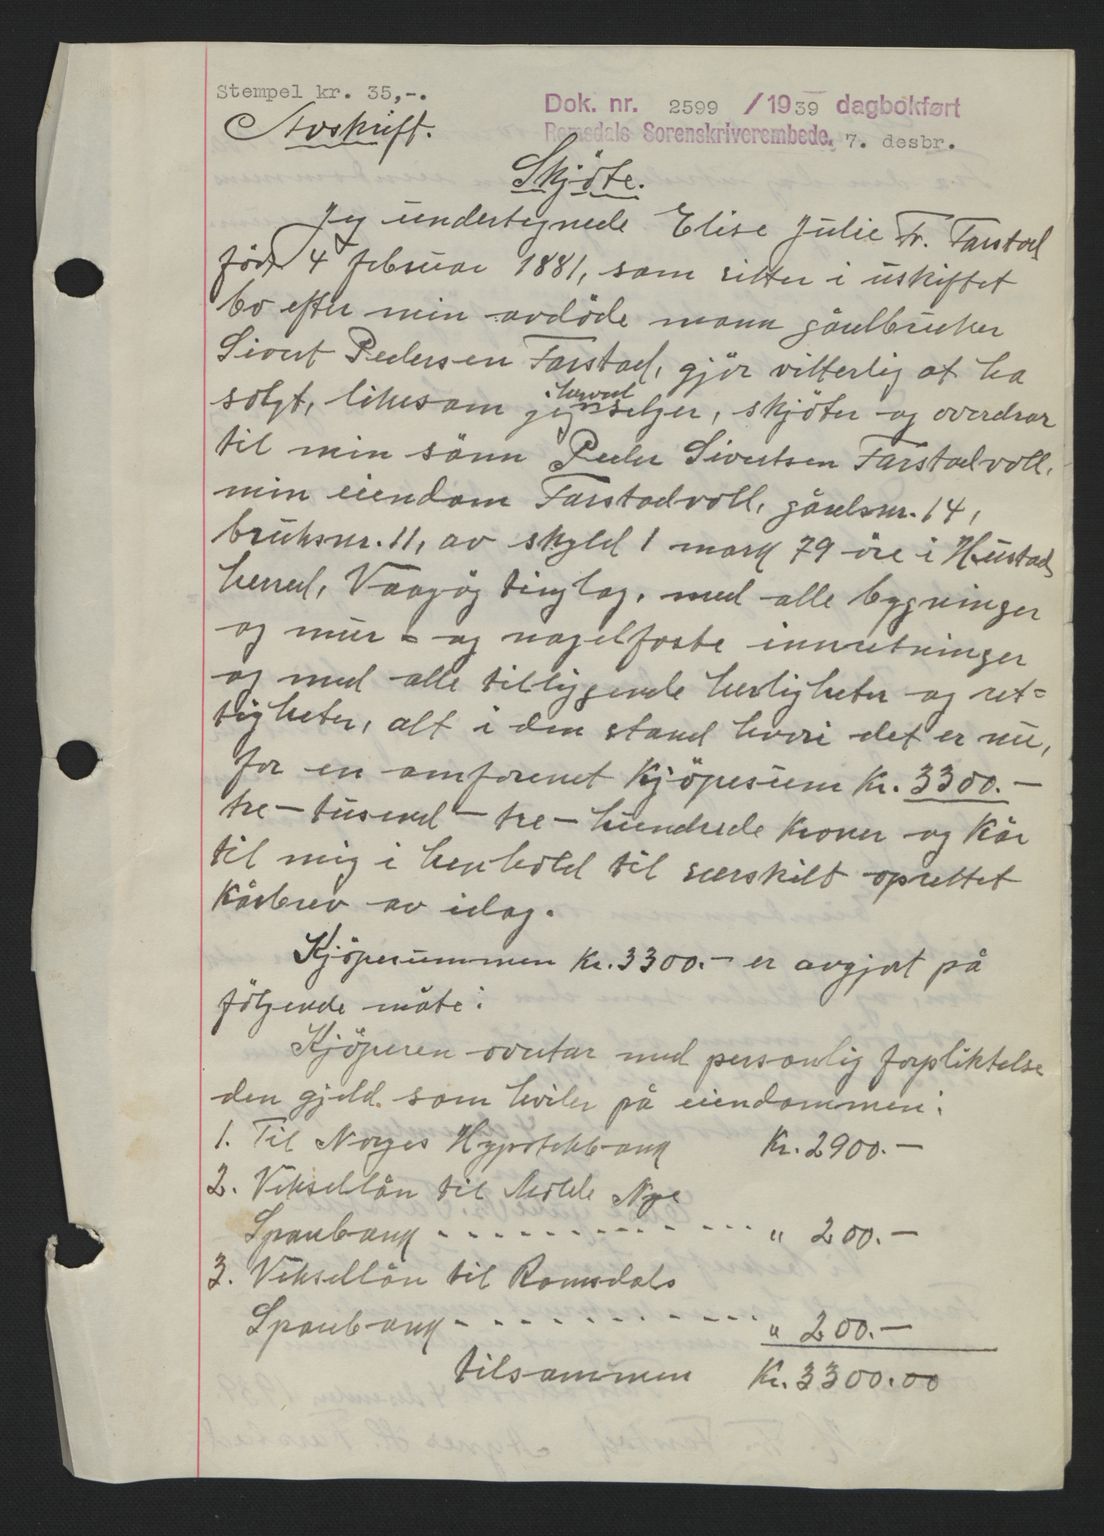 Stempel kr. 35,-.
Dok. nr. 2599 /1939 dagbokført
Avskrift.
Romsdals Sorenskriverembede, 7. desbr.
Skjöte.
Jeg undertegnede Elise Julie Fr. Farstad
född 4 februar 1881, som sitter i uskiftet
bo efter min avdöde mann gårdbruker
Sivert Pedersen Farstad, gjör vitterlig at ha
solgt, likesom jeg herved selger, skjöter og overdrar
til min sönn Peder Sivertsen Farstadvoll,
min eiendom Farstadvoll, gårdsnr. 14,
bruksnr. 11, av skyld 1 mark 79 öre i Hustad
herred, Vaagöy tinglag, med alle bygninger
og mur = og nagelfaste innretninger
og med alle tilliggende herligheter og ret=
tigheter, alt i den stand hvori det er nu,
for en omforenet Kjöpesum Kr. 3300.-
tre - tusend - tre - hundrede Kroner og Kår
til mig i henhold til særskilt oprettet
Kårbrev av idag.
Kjöpesummen Kr. 3300.- er avgjort på
fölgende måte:
Kjöperen overtar med personlig forpliktelse
den gjeld som hviler på eiendommen:
1. Til Norges Hypotekbank Kr. 2900.-
2. Veksellån til Molde Nye
Sparebank - - - - - - - - - - - - " 200.-
3. Veksellån til Romsdals
Sparebank - - - - - - - - - - - " 200.-
tilsammen Kr. 3300.00